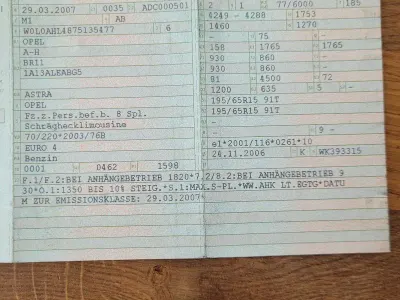 29.03.2007 0035 ADC000501
M1 AB
W0L0AHL4875135477 6
OPEL
A-H
BR11
1A13ALEABG5
ASTRA
OPEL
Fz.z.Pers.bef.b. 8 Spl.
Schräghecklimousine
70/220*2003/76B
EURO 4
Benzin
0001 0462 1598
2 1 77/6000 185
4249 - 4288 1753
1460 1270
- 75 -
158 1765 1765
930 860 -
930 860 -
81 4500 72
1200 635 5 -
195/65R15 91T
195/65R15 91T
-
- 9 -
e1*2001/116*0261*10
24.11.2006 K WK393315
F.1/F.2:BEI ANHÄNGEBETRIEB 1820*7.2/8.2:BEI ANHÄNGEBETRIEB 9
30*O.1:1350 BIS 10% STEIG.*S.1:MAX.S-PL.*WW.AHK LT.EGTG*DATU
M ZUR EMISSIONSKLASSE: 29.03.2007*